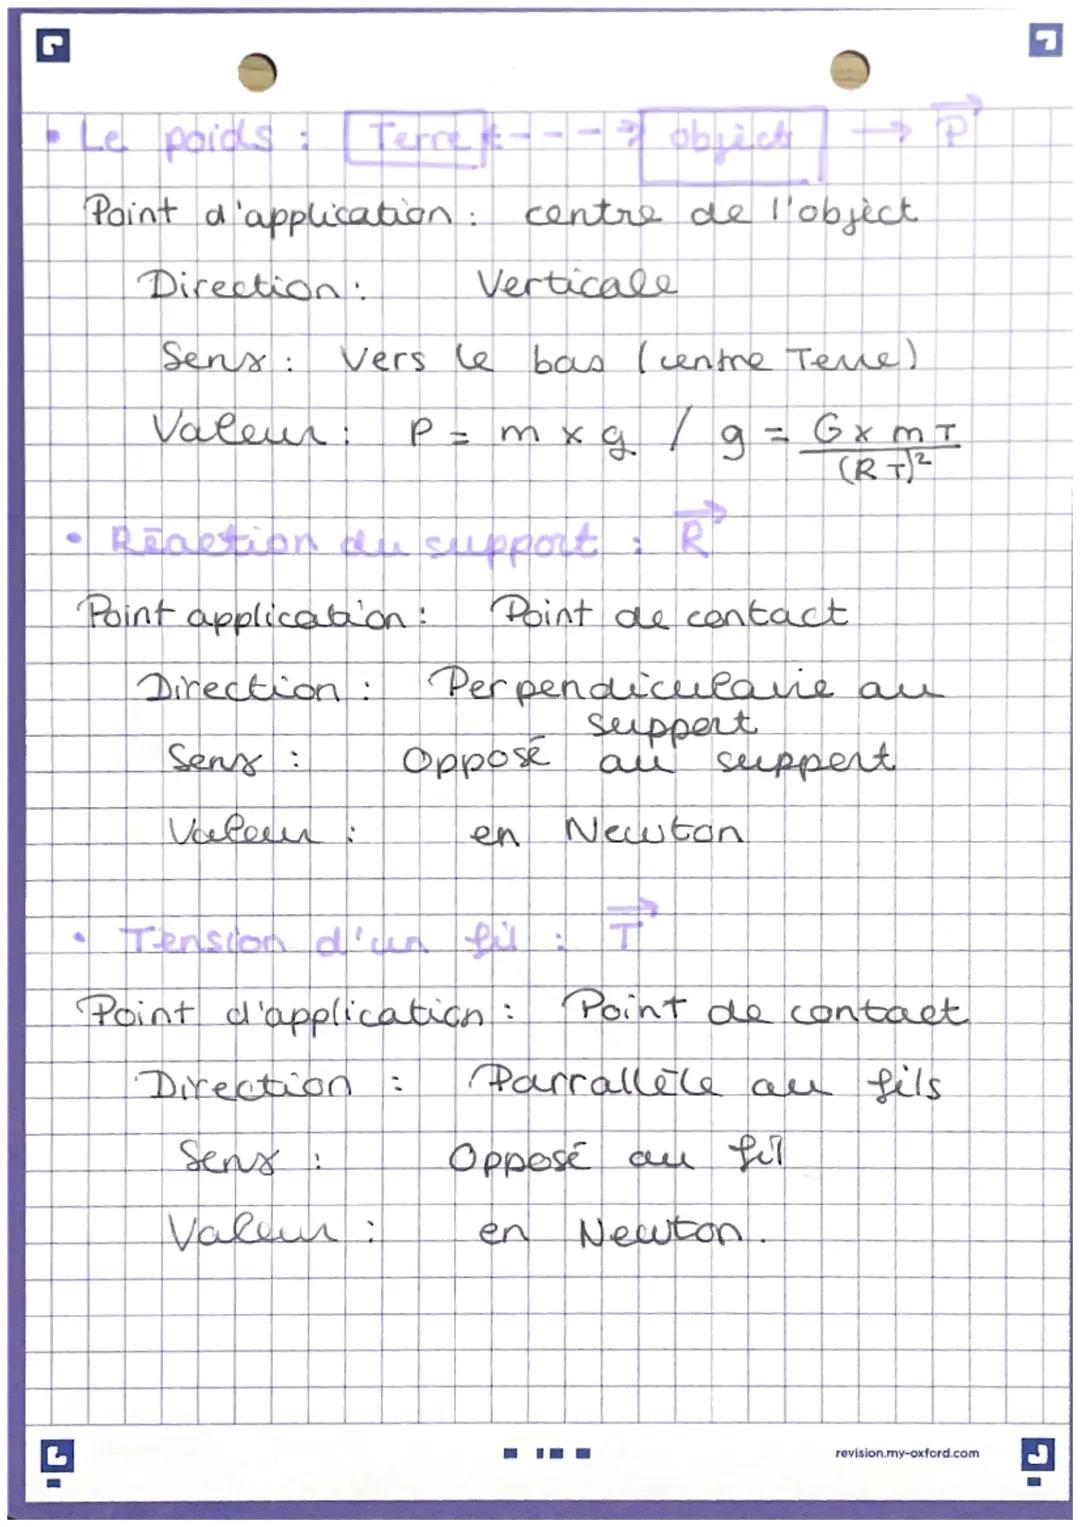 • Le poids : Terre <---> object → P
Point d'application : centre de l'objèct
Direction : Verticale
Sens : Vers le bas (centre Terre)
Valeur : P = m x g / g = G x mT / (RT)²
• Réaction du support : R
Point application : Point de contact
Direction : Perpendiculaire au
support
Sens : Opposé au support
Valeur : en Newton
• Tension d'un fil : T
Point d'application : Point de contact
Direction : Parrallèle au fils
Sens : Opposé au fil
Valeur : en Newton.
revision.my-oxford.com